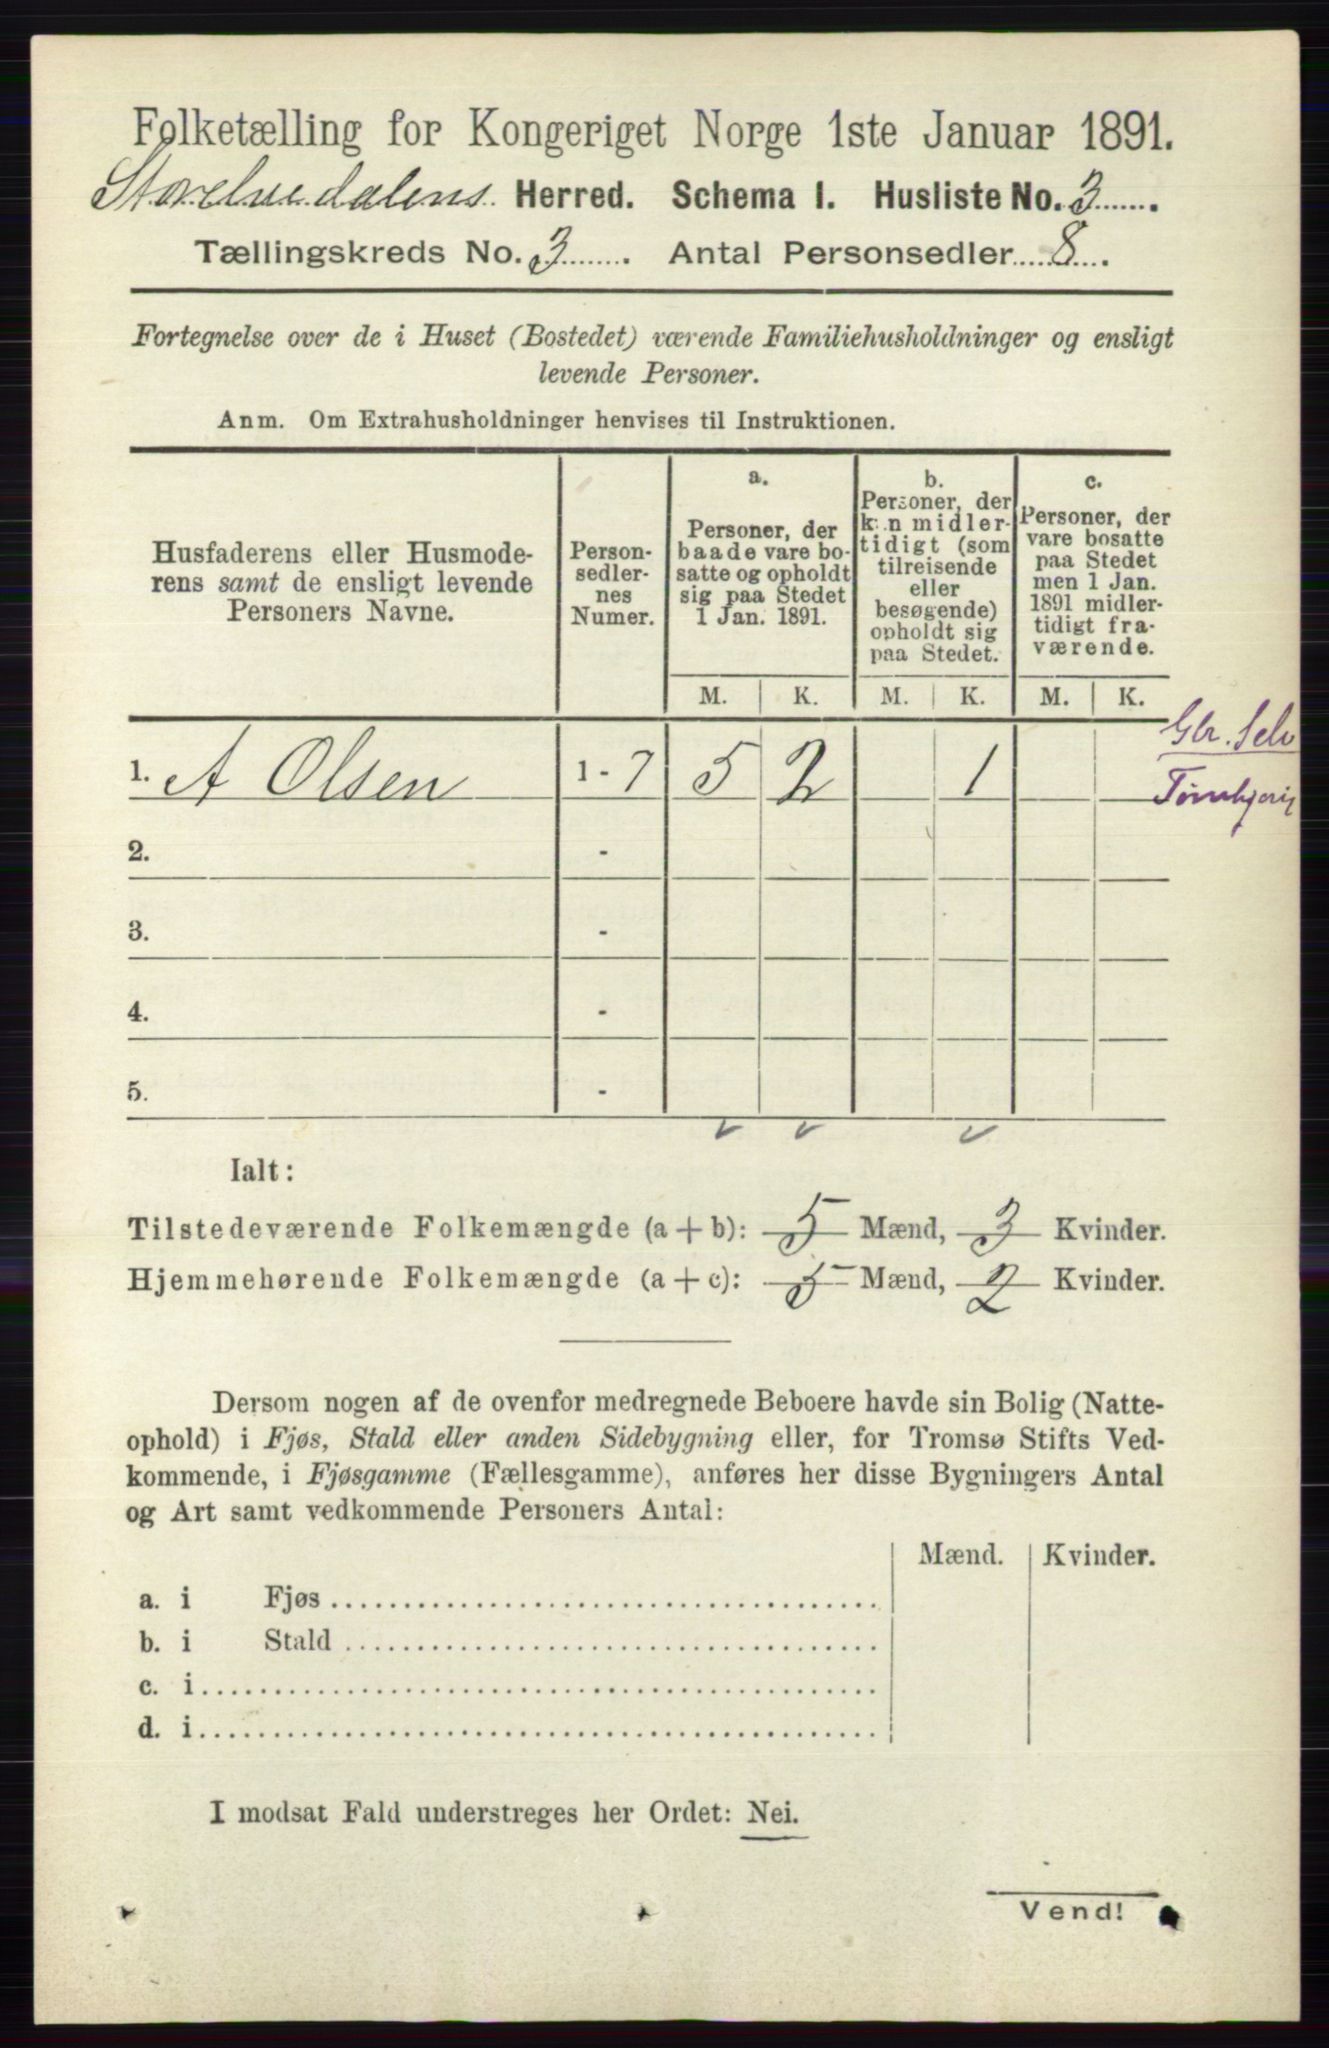 Folketælling for Kongeriget Norge 1ste Januar 1891.
Storelvedalens Herred. Schema I. Husliste No. 3
Tællingskreds No. 3. Antal Personsedler 8.
Fortegnelse over de i Huset (Bostedet) værende Familiehusholdninger og ensligt
levende Personer.
Anm. Om Extrahusholdninger henvises til Instruktionen.
Husfaderens eller Husmode-
rens samt de ensligt levende
Personers Navne.
Person-
sedler-
nes
Numer.
a.
Personer, der
baade vare bo-
satte og opholdt
sig paa Stedet
1 Jan. 1891.
b.
Personer, der
kun midler-
tidigt (som
tilreisende
eller
besøgende)
opholdt sig
paa Stedet.
c.
Personer, der
vare bosatte
paa Stedet
men 1 Jan.
1891 midler-
tidigt fra-
værende.
M. K. M. K. M. K.
1. A Olsen 1 - 7 5 2 1
2. -
3. -
4. -
5. -
Ialt:
Tilstedeværende Folkemængde (a + b): 5 Mænd, 3 Kvinder.
Hjemmehørende Folkemængde (a + c): 5 Mænd, 2 Kvinder.
Dersom nogen af de ovenfor medregnede Beboere havde sin Bolig (Natte-
ophold) i Fjøs, Stald eller anden Sidebygning eller, for Tromsø Stifts Ved-
kommende, i Fjøsgamme (Fællesgamme), anføres her disse Bygningers Antal
og Art samt vedkommende Personers Antal:
Mænd. Kvinder.
a. i Fjøs
b. i Stald
c. i
d. i
I modsat Fald understreges her Ordet: Nei.
Vend!